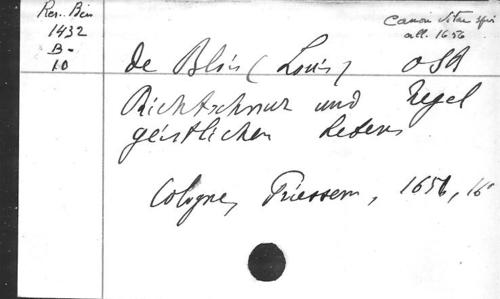 Res. Bin
1432
B-
10
Canon vitae spir
all. 1656
de Blois (Louis) OSB
Richtschnur und Regel
geistlichen Lebens
Cologne, Friessem, 1656, 16°